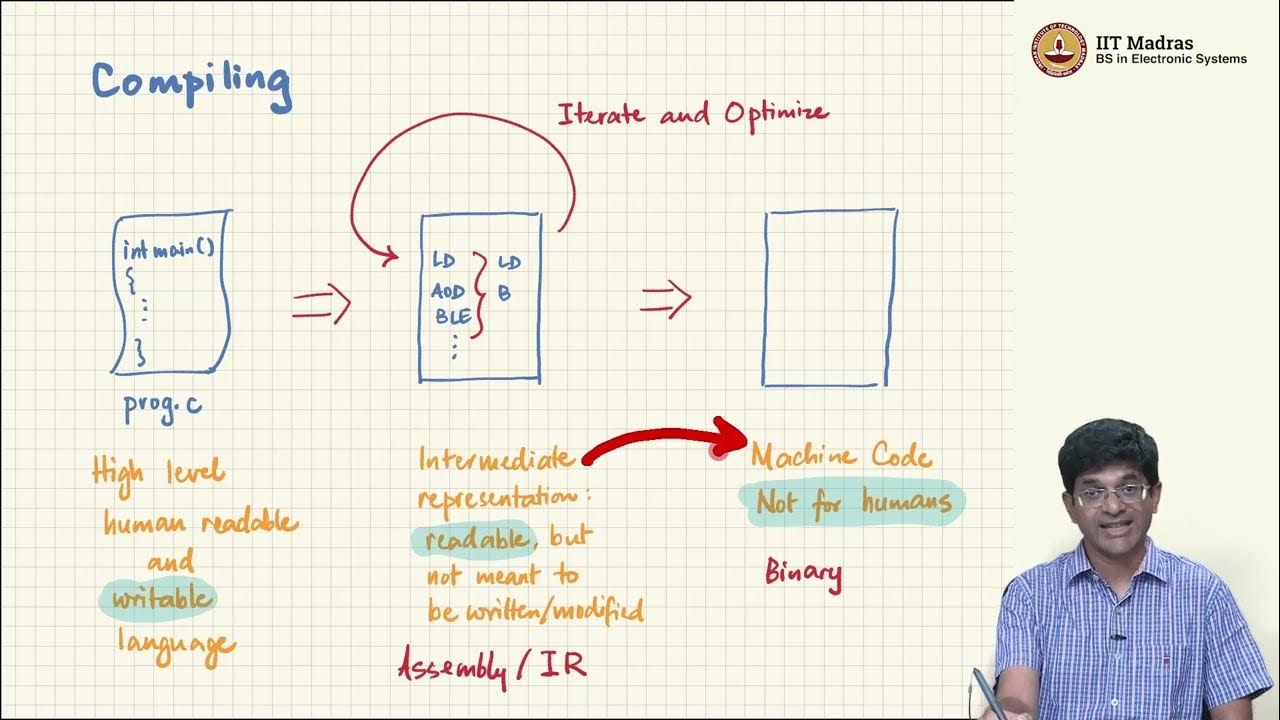 IIT Madras
BS in Electronic Systems
Compiling
Iterate and Optimize
int main()
{
⋮
}
prog.c
LD
ADD
BLE
⋮
LD
B
High level
human readable
and
writable
language
Intermediate
representation:
readable, but
not meant to
be written/modified
Assembly / IR
Machine Code
Not for humans
Binary